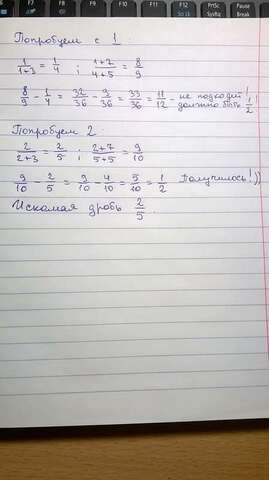 F7 F8 F9 F10 F11 F12 PrtSc Pause
SysRq Break
Попробуем с 1:
1/(1+3) = 1/4 ; (1+7)/(4+5) = 8/9
8/9 - 1/4 = 32/36 - 9/36 = 33/36 = 11/12 - не подходит!
должно быть 1/2!
Попробуем 2:
2/(2+3) = 2/5 ; (2+7)/(5+5) = 9/10
9/10 - 2/5 = 9/10 - 4/10 = 5/10 = 1/2 Получилось!))
Искомая дробь 2/5.